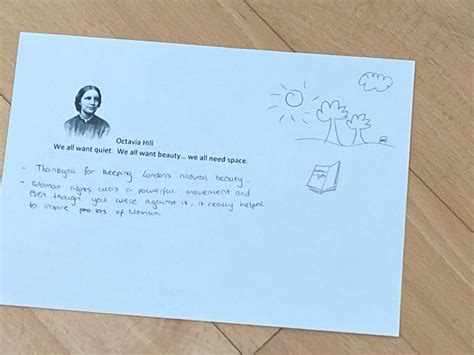 Octavia Hill
We all want quiet. We all want beauty... we all need space.
- Thankyou for keeping Londons natural beauty.
- Woman rights was a powerful movement and
even though you were against it, it really helped
to inspire of woman